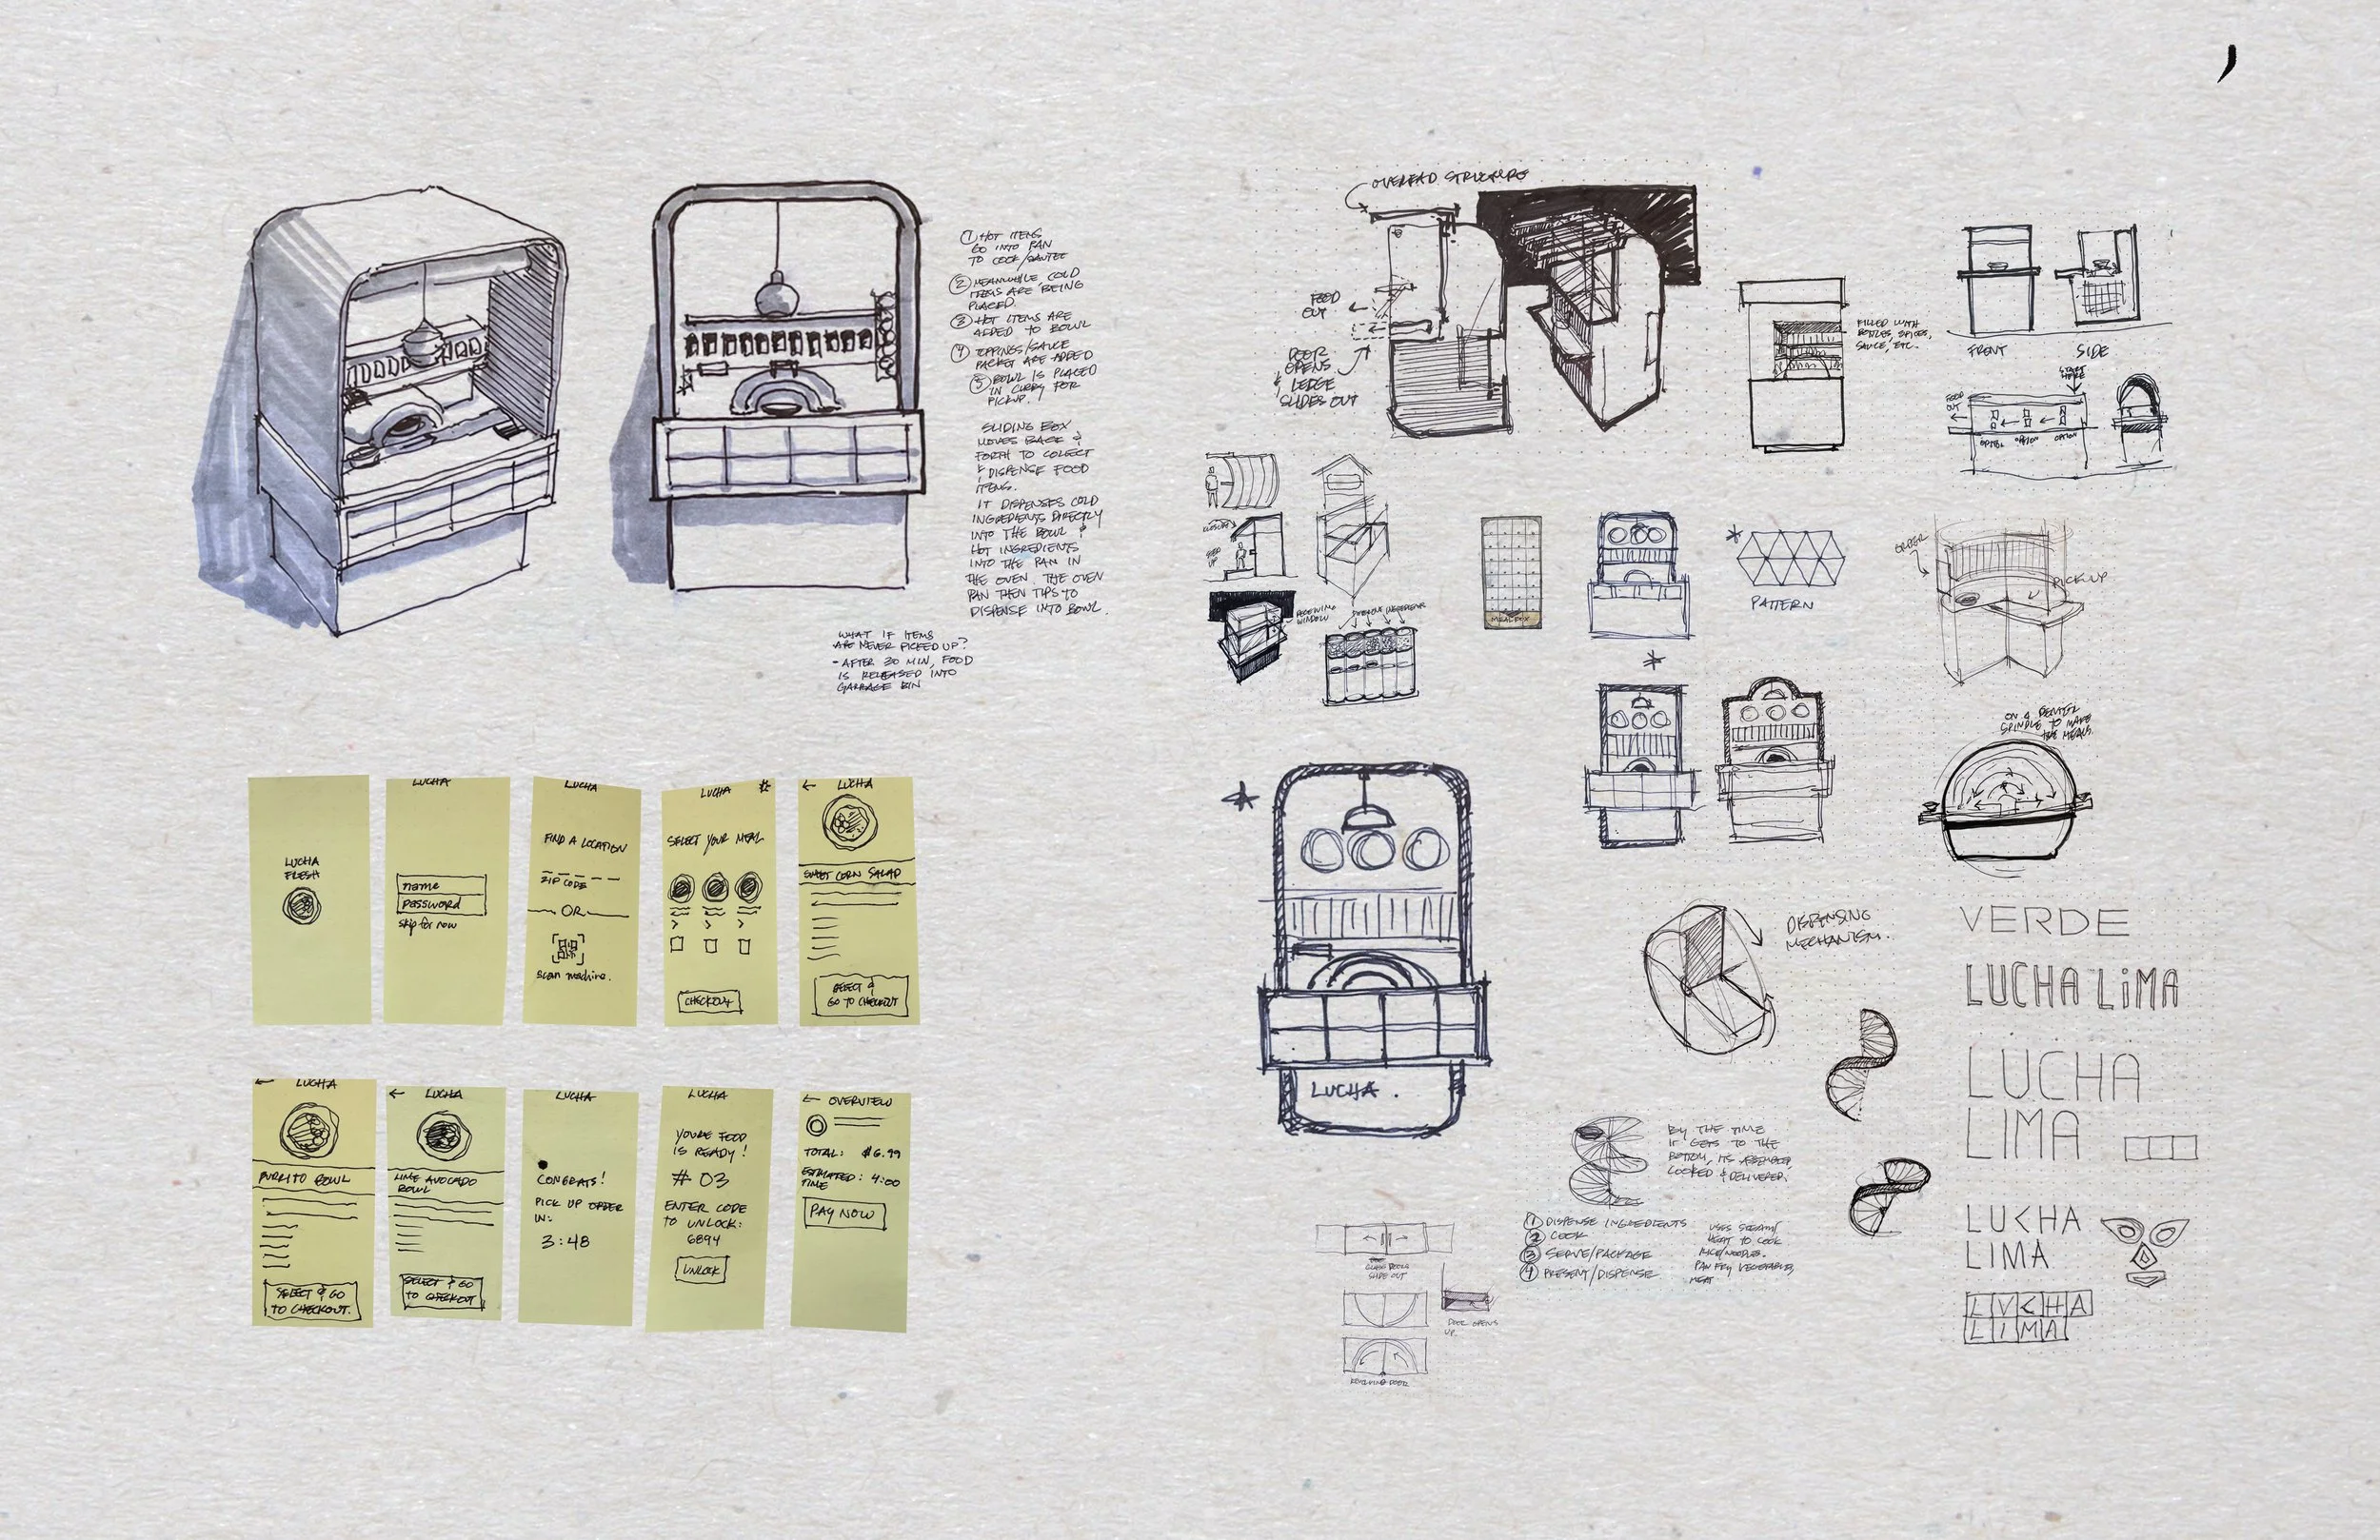 ① HOT ITEMS
GO INTO PAN
TO COOK/SAUTEE
② MEANWHILE, COLD
ITEMS ARE BEING
PLACED.
③ HOT ITEMS ARE
ADDED TO BOWL
④ TOPPINGS/SAUCE
PACKET ARE ADDED
⑤ BOWL IS PLACED
IN CUBBY FOR
PICKUP.
SLIDING BOX
MOVES BACK &
FORTH TO COLECT
& DISPENSE FOOD
ITEMS.
IT DISPENSES COLD
INGREDIENTS DIRECTLY
INTO THE BOWL &
HOT INGREDIENTS
INTO THE PAN IN
THE OVEN. THE OVEN
PAN THEN TIPS TO
DISPENSE INTO BOWL.
WHAT IF ITEMS
ARE NEVER PICKED UP?
- AFTER 30 MIN, FOOD
IS RELEASED INTO
GARBAGE BIN
LUCHA
FRESH
LUCHA
name
password
skip for now
LUCHA
FIND A LOCATION
ZIP CODE
OR
scan machine.
LUCHA
SELECT YOUR MEAL
CHECKOUT
← LUCHA
SWEET CORN SALAD
SELECT &
GO TO CHECKOUT
← LUCHA
BURRITO BOWL
SELECT & GO
TO CHECKOUT.
← LUCHA
LIME AVOCADO
BOWL
SELECT & GO
TO CHECKOUT
LUCHA
CONGRATS!
PICK UP ORDER
IN:
3:48
LUCHA
YOUR FOOD
IS READY!
# 03
ENTER CODE
TO UNLOCK:
6894
UNLOCK
← OVERVIEW
TOTAL: $6.99
ESTIMATED: 4:00
TIME
PAY NOW
OVEREAD STRUCTURE
FOOD
OUT
DOOR
OPENS
& LEDGE
SLIDES OUT
FILLED WITH
BOTTLES, SPICES,
SAUCE, ETC.
FRONT
SIDE
START
HERE
FOOD
OUT
OPTION
OPTION
STEP
UP
RECEIVING
WINDOW
DIFFERENT INGREDIENTS
MEAL BOX
PATTERN
ORDER
PICK UP
ON A CENTER
SPINDLE TO MAKE
THE MEALS.
LUCHA.
DISPENSING
MECHANISM.
BY THE TIME
IT GETS TO THE
BOTTOM, ITS ASSEMBLED,
COOKED & DELIVERED.
① DISPENSE INGREDIENTS
② COOK
③ SERVE/PACKAGE
④ PRESENT/DISPENSE
USES STEAM/
HEAT TO COOK
RICE/NOODLES.
PAN FRY VEGETABLES,
MEAT
GLASS DOORS
SLIDE OUT
DOOR OPENS
UP.
REVOLVING DOOR
VERDE
LUCHA LiMA
LUCHA
LIMA
LUCHA
LIMA
LVCHA
LIMA